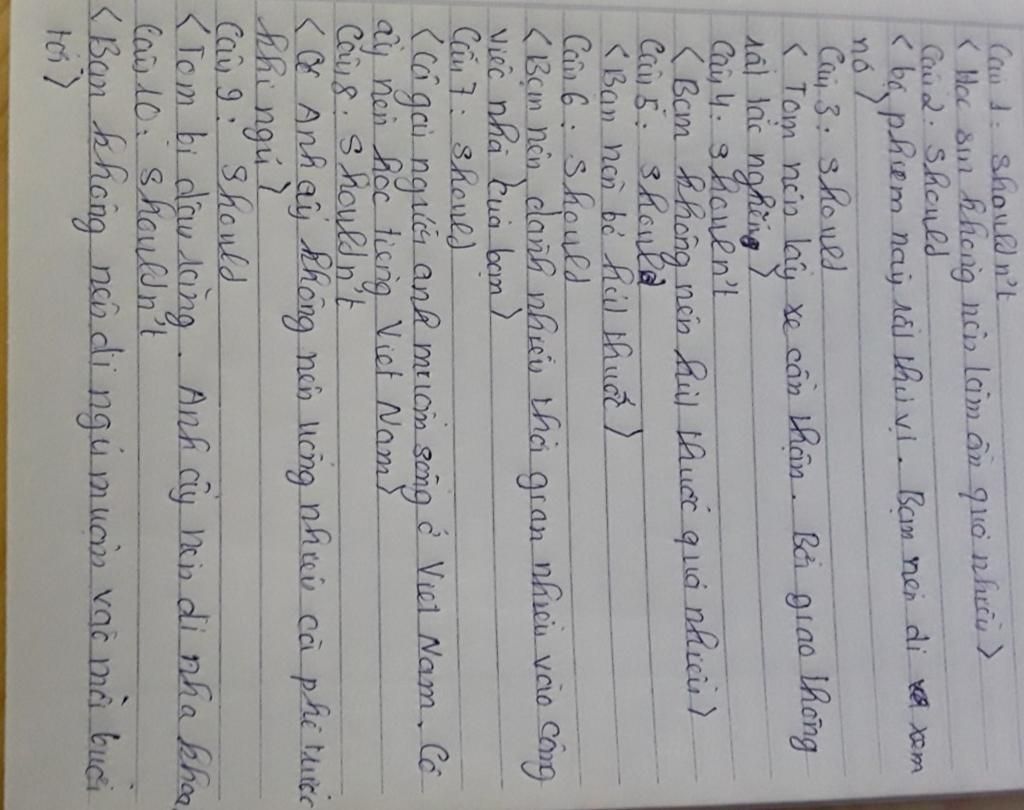 Câu 1: shouldn't
< Học sin không nên làm ồn quá nhiều >
Câu 2: should
< bộ phim này rất thú vị. Bạn nên đi xem
nó >
Câu 3: should
< Tom nên lấy xe cẩn thận. Bởi giao thông
rất tắc nghẽng >
Câu 4: shoulen't
< Bạn không nên hút thuốc quá nhiều >
Câu 5: should
< Bạn nên bỏ hút thuốc >
Câu 6: should
< Bạn nên dành nhiều thời gian nhiều vào công
việc nhà của bạn >
Câu 7: should
< Cô gái người anh muốn sống ở Việt Nam. Cô
ấy nên học tiếng Việt Nam >
Câu 8: shouldn't
< Anh ấy không nên uống nhiều cà phê trước
khi ngủ >
Câu 9: should
< Tom bị đau răng. Anh ấy nên đi nha khoa
Câu 10: shouldn't
< Bạn không nên đi ngủ muộn vào mỗi buổi
tối >